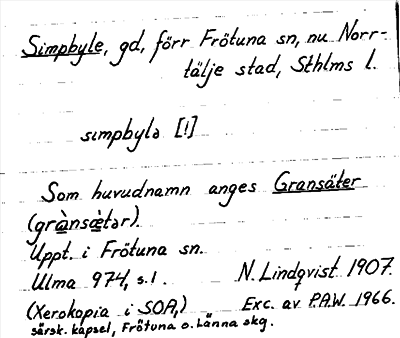 Simpbyle, gd, förr Frötuna sn, nu Norr-
tälje stad, Sthlms l.
sımpbylə [!]
Som huvudnamn anges Gransäter
(grànsæ̀tər).
Uppt. i Frötuna sn.
Ulma 974, s.1. N. Lindqvist 1907.
(Xerokopia i SOA,) Exc. av P.A.W. 1966.
särsk. kapsel, Frötuna o. Länna skg.